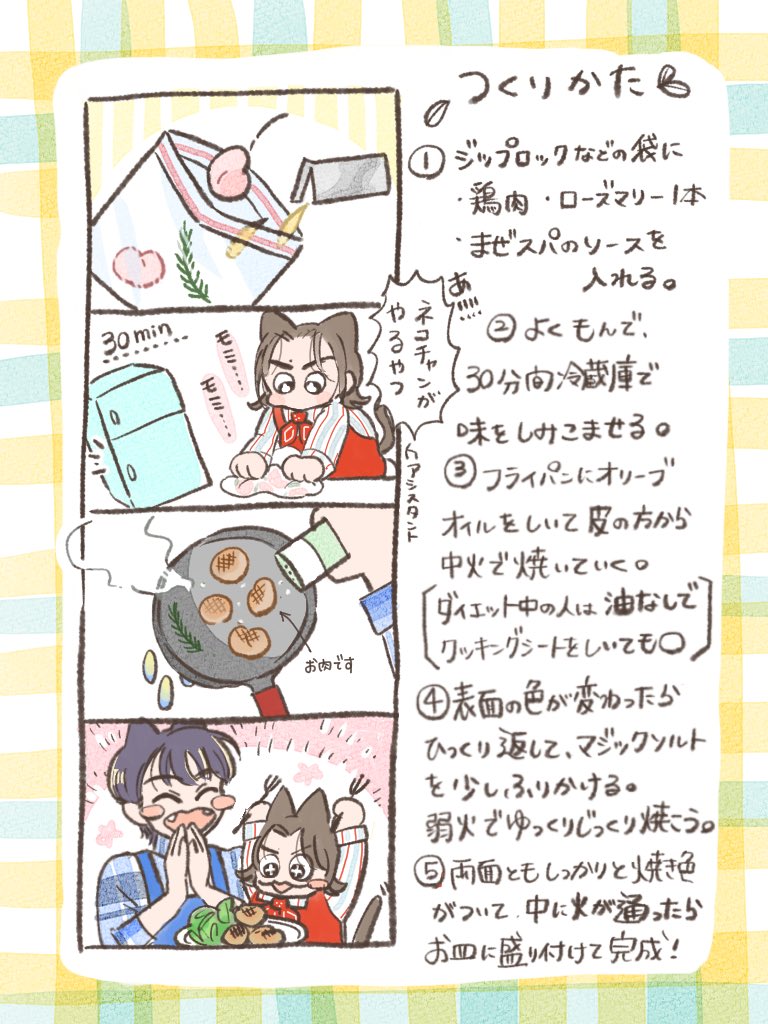 つくりかた
① ジップロックなどの袋に
・鶏肉 ・ローズマリー1本
・まぜスパのソースを
入れる。
② よくもんで、
30分間冷蔵庫で
味をしみこませる。
③ フライパンにオリーブ
オイルをしいて皮の方から
中火で焼いていく。
ダイエット中の人は油なしで
クッキングシートをしいても〇
④ 表面の色が変わったら
ひっくり返して、マジックソルト
を少しふりかける。
弱火でゆっくりじっくり焼こう。
⑤ 両面ともしっかりと焼き色
がついて中に火が通ったら
お皿に盛り付けて完成!
30min
モミ…
モミ…
ネコチャンが
やるやつ
あ
アシスタント
お肉です